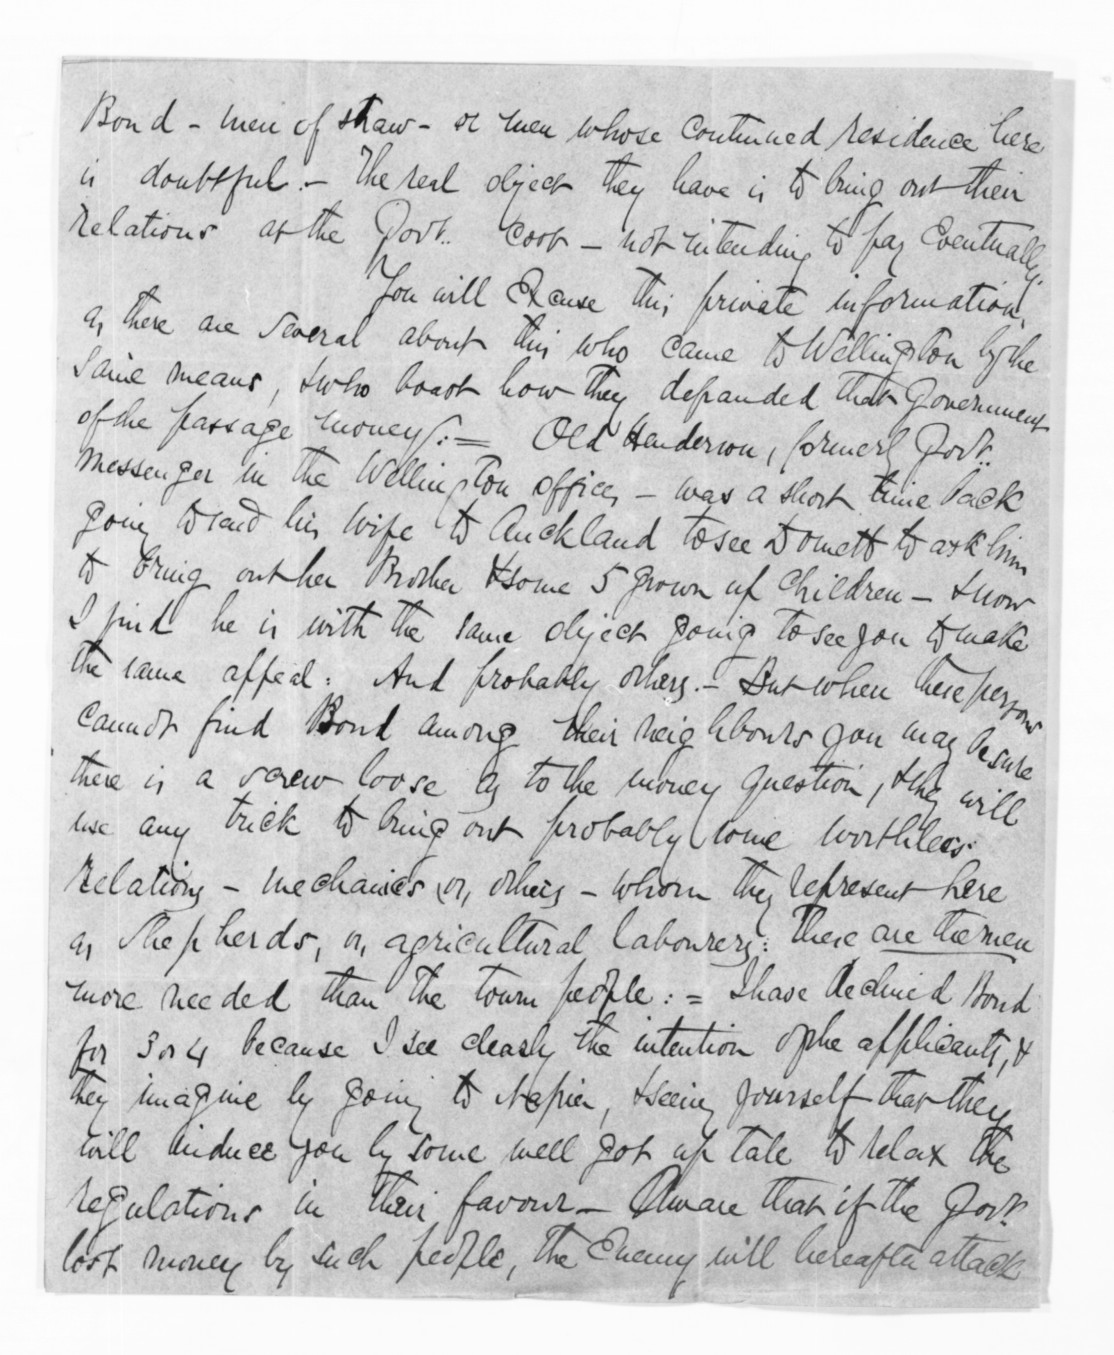 Bond - men of straw - or men whose continued residence here
is doubtful. - The real object they have is to bring out their
relations at the Govt. cost - not intending to pay eventually.
You will excuse this private information,
as there are several about this who came to Wellington by the
same means, & who boast how they defrauded that Government
of the passage money. : = Old Henderson, formerly Govt.
messenger in the Wellington offices - was a short time back
going to send his wife to Auckland to see Domett to ask him
to bring out her Brother & some 5 grown up children - & now
I find he is with the same object going to see you to make
the same appeal : And probably others. - But when these persons
cannot find Bond among their neighbours you may be sure
there is a screw loose as to the money question, & they will
use any trick to bring out probably some worthless
relations - mechanics or, others - whom they represent here
as Shepherds, or, agricultural labourers : these are the men
more needed than the town people : = I have declined Bond
for 3 or 4 because I see clearly the intention of the applicants, &
they imagine by going to Napier, & seeing yourself that they
will induce you by some well got up tale to relax the
regulations in their favour - Aware that if the Govt.
lost money by such people, the Enemy will hereafter attack